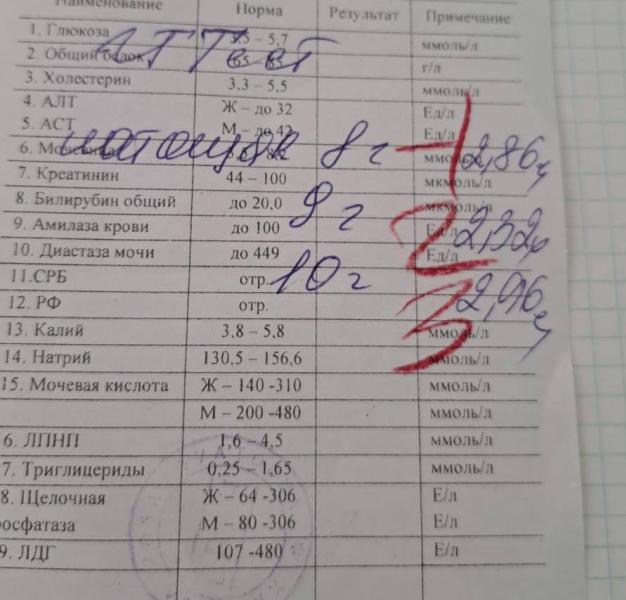 Наименование Норма Результат Примечание
1. Глюкоза 3,5 – 5,7 ммоль/л
2. Общий белок г/л
3. Холестерин 3,3 – 5,5 ммоль/л
4. АЛТ Ж – до 32 Ед/л
5. АСТ М – до 42 Ед/л
6. Мочевина ммоль/л
натощак 8 г 1 2,86
7. Креатинин 44 – 100 мкмоль/л
8. Билирубин общий до 20,0 мкмоль/л
9 г 2 2,32
9. Амилаза крови до 100 Ед/л
10. Диастаза мочи до 449 Ед/л
11.СРБ отр.
10 г 3 2,96
12. РФ отр.
13. Калий 3,8 – 5,8 ммоль/л
14. Натрий 130,5 – 156,6 ммоль/л
15. Мочевая кислота Ж – 140 -310 ммоль/л
М – 200 -480 ммоль/л
6. ЛПНП 1,6 – 4,5 ммоль/л
7. Триглицериды 0,25 – 1,65 ммоль/л
8. Щелочная Ж – 64 -306 Е/л
фосфатаза М – 80 -306 Е/л
9. ЛДГ 107 -480 Е/л